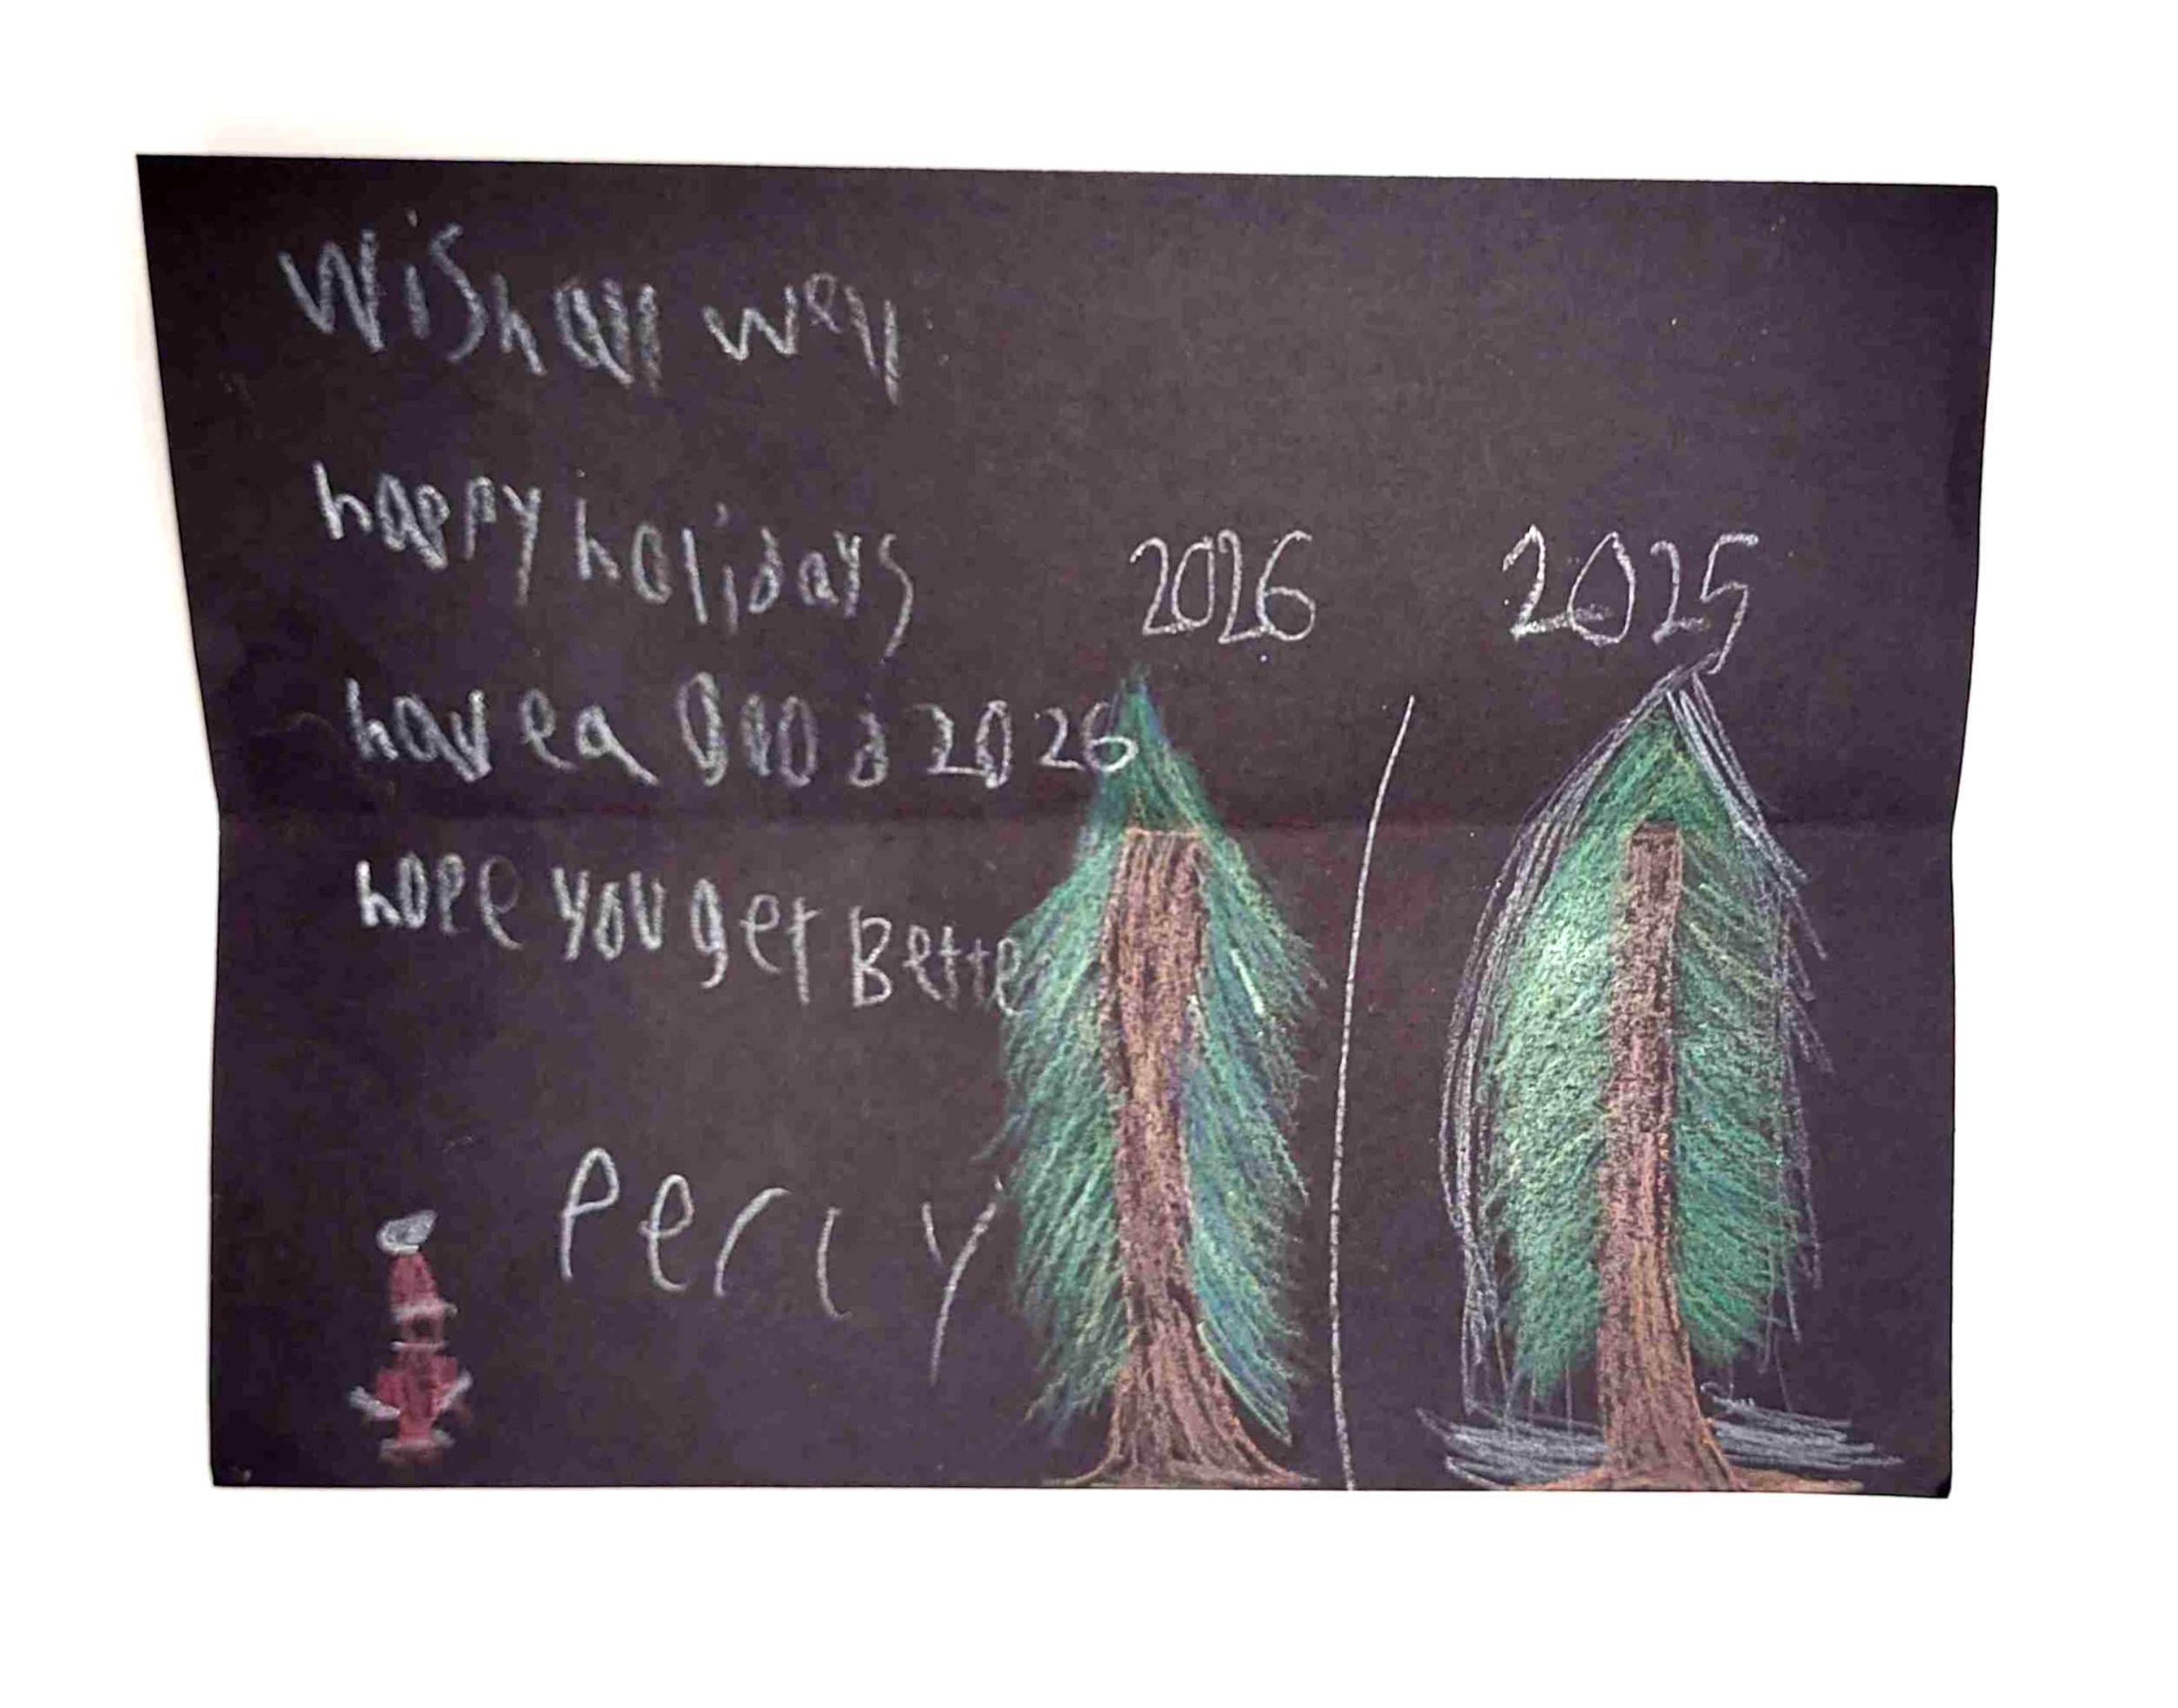 Wish all well
happy holidays
have a good 2026
hope you get Bette
Percy
2026
2025